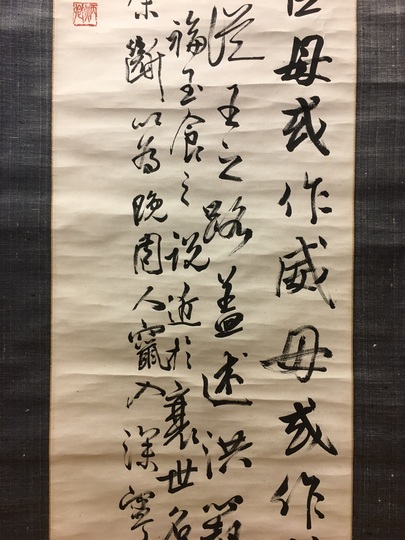 毋或作威毋或作
從王之路蓋述洪範
福玉食之説近於衰世名
斷以為晚周人竄入深寧